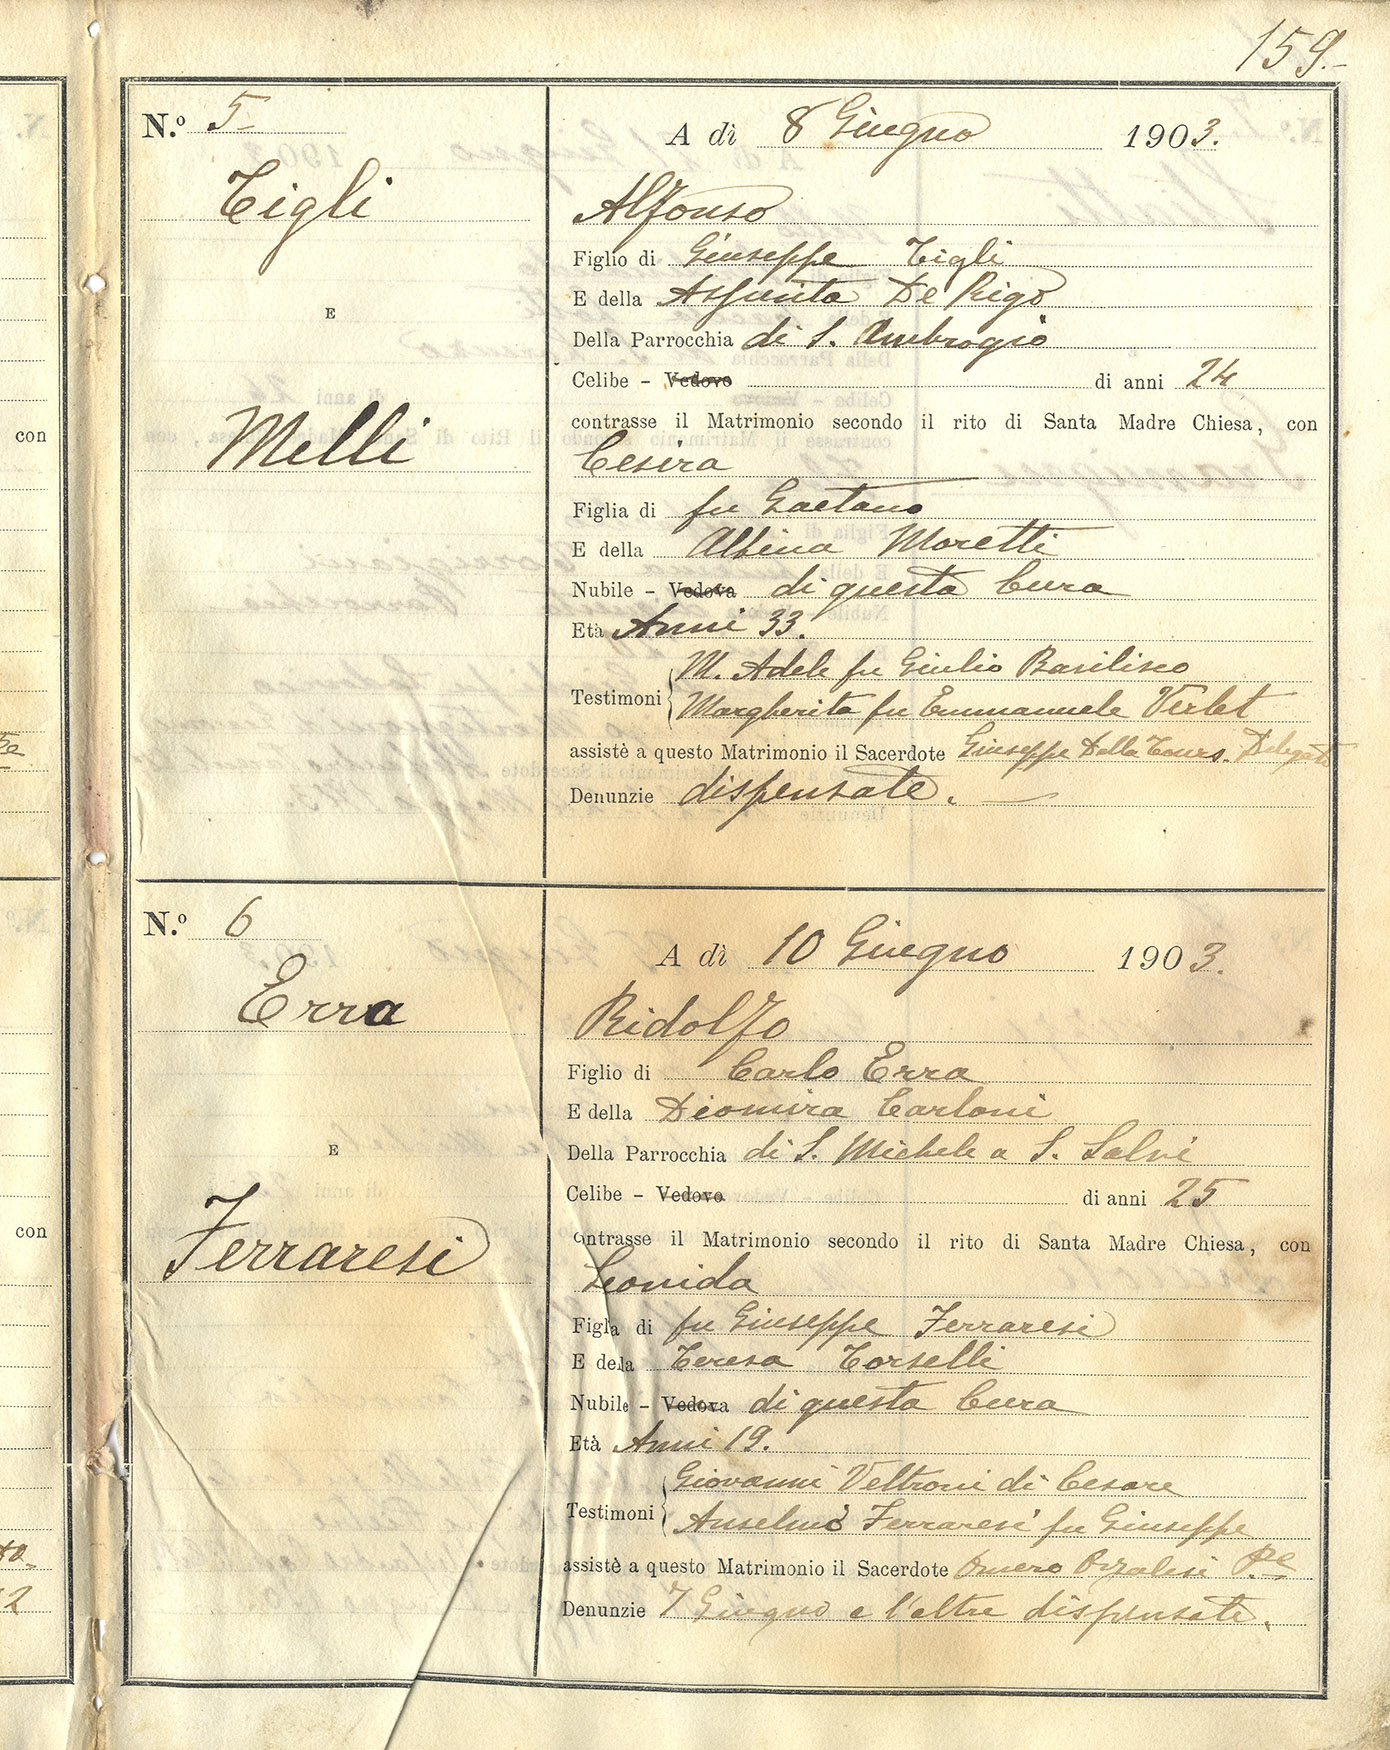 159.
N.º 5
Tigli
E
Melli
A dì 8 Giugno 1903.
Alfonso
Figlio di Giuseppe Tigli
E della Assunta De Rigo
Della Parrocchia di S. Ambrogio
Celibe - Vedovo di anni 24
contrasse il Matrimonio secondo il rito di Santa Madre Chiesa, con
Cesira
Figlia di fu Gaetano
E della Albina Moretti
Nubile - Vedova di questa Cura
Età Anni 33.
Testimoni M. Adele fu Giulio Basilisco
Margherita fu Emmanuele Verlet
assistè a questo Matrimonio il Sacerdote Giuseppe Dalla
Denunzie dispensate.
N.º 6
Erra
E
Ferraresi
A dì 10 Giugno 1903.
Ridolfo
Figlio di Carlo Erra
E della Diomira Carloni
Della Parrocchia di S. Michele a S. Salvi
Celibe - Vedovo di anni 25
contrasse il Matrimonio secondo il rito di Santa Madre Chiesa, con
Leonida
Figlia di fu Giuseppe Ferraresi
E della Teresa Torselli
Nubile - Vedova di questa Cura
Età Anni 19.
Testimoni Giovanni Veltroni di Cesare
Anselmo Ferraresi fu Giuseppe
assistè a questo Matrimonio il Sacerdote Omero Orzalesi P.re
Denunzie 7 Giugno e l'altre dispensate.
con
con